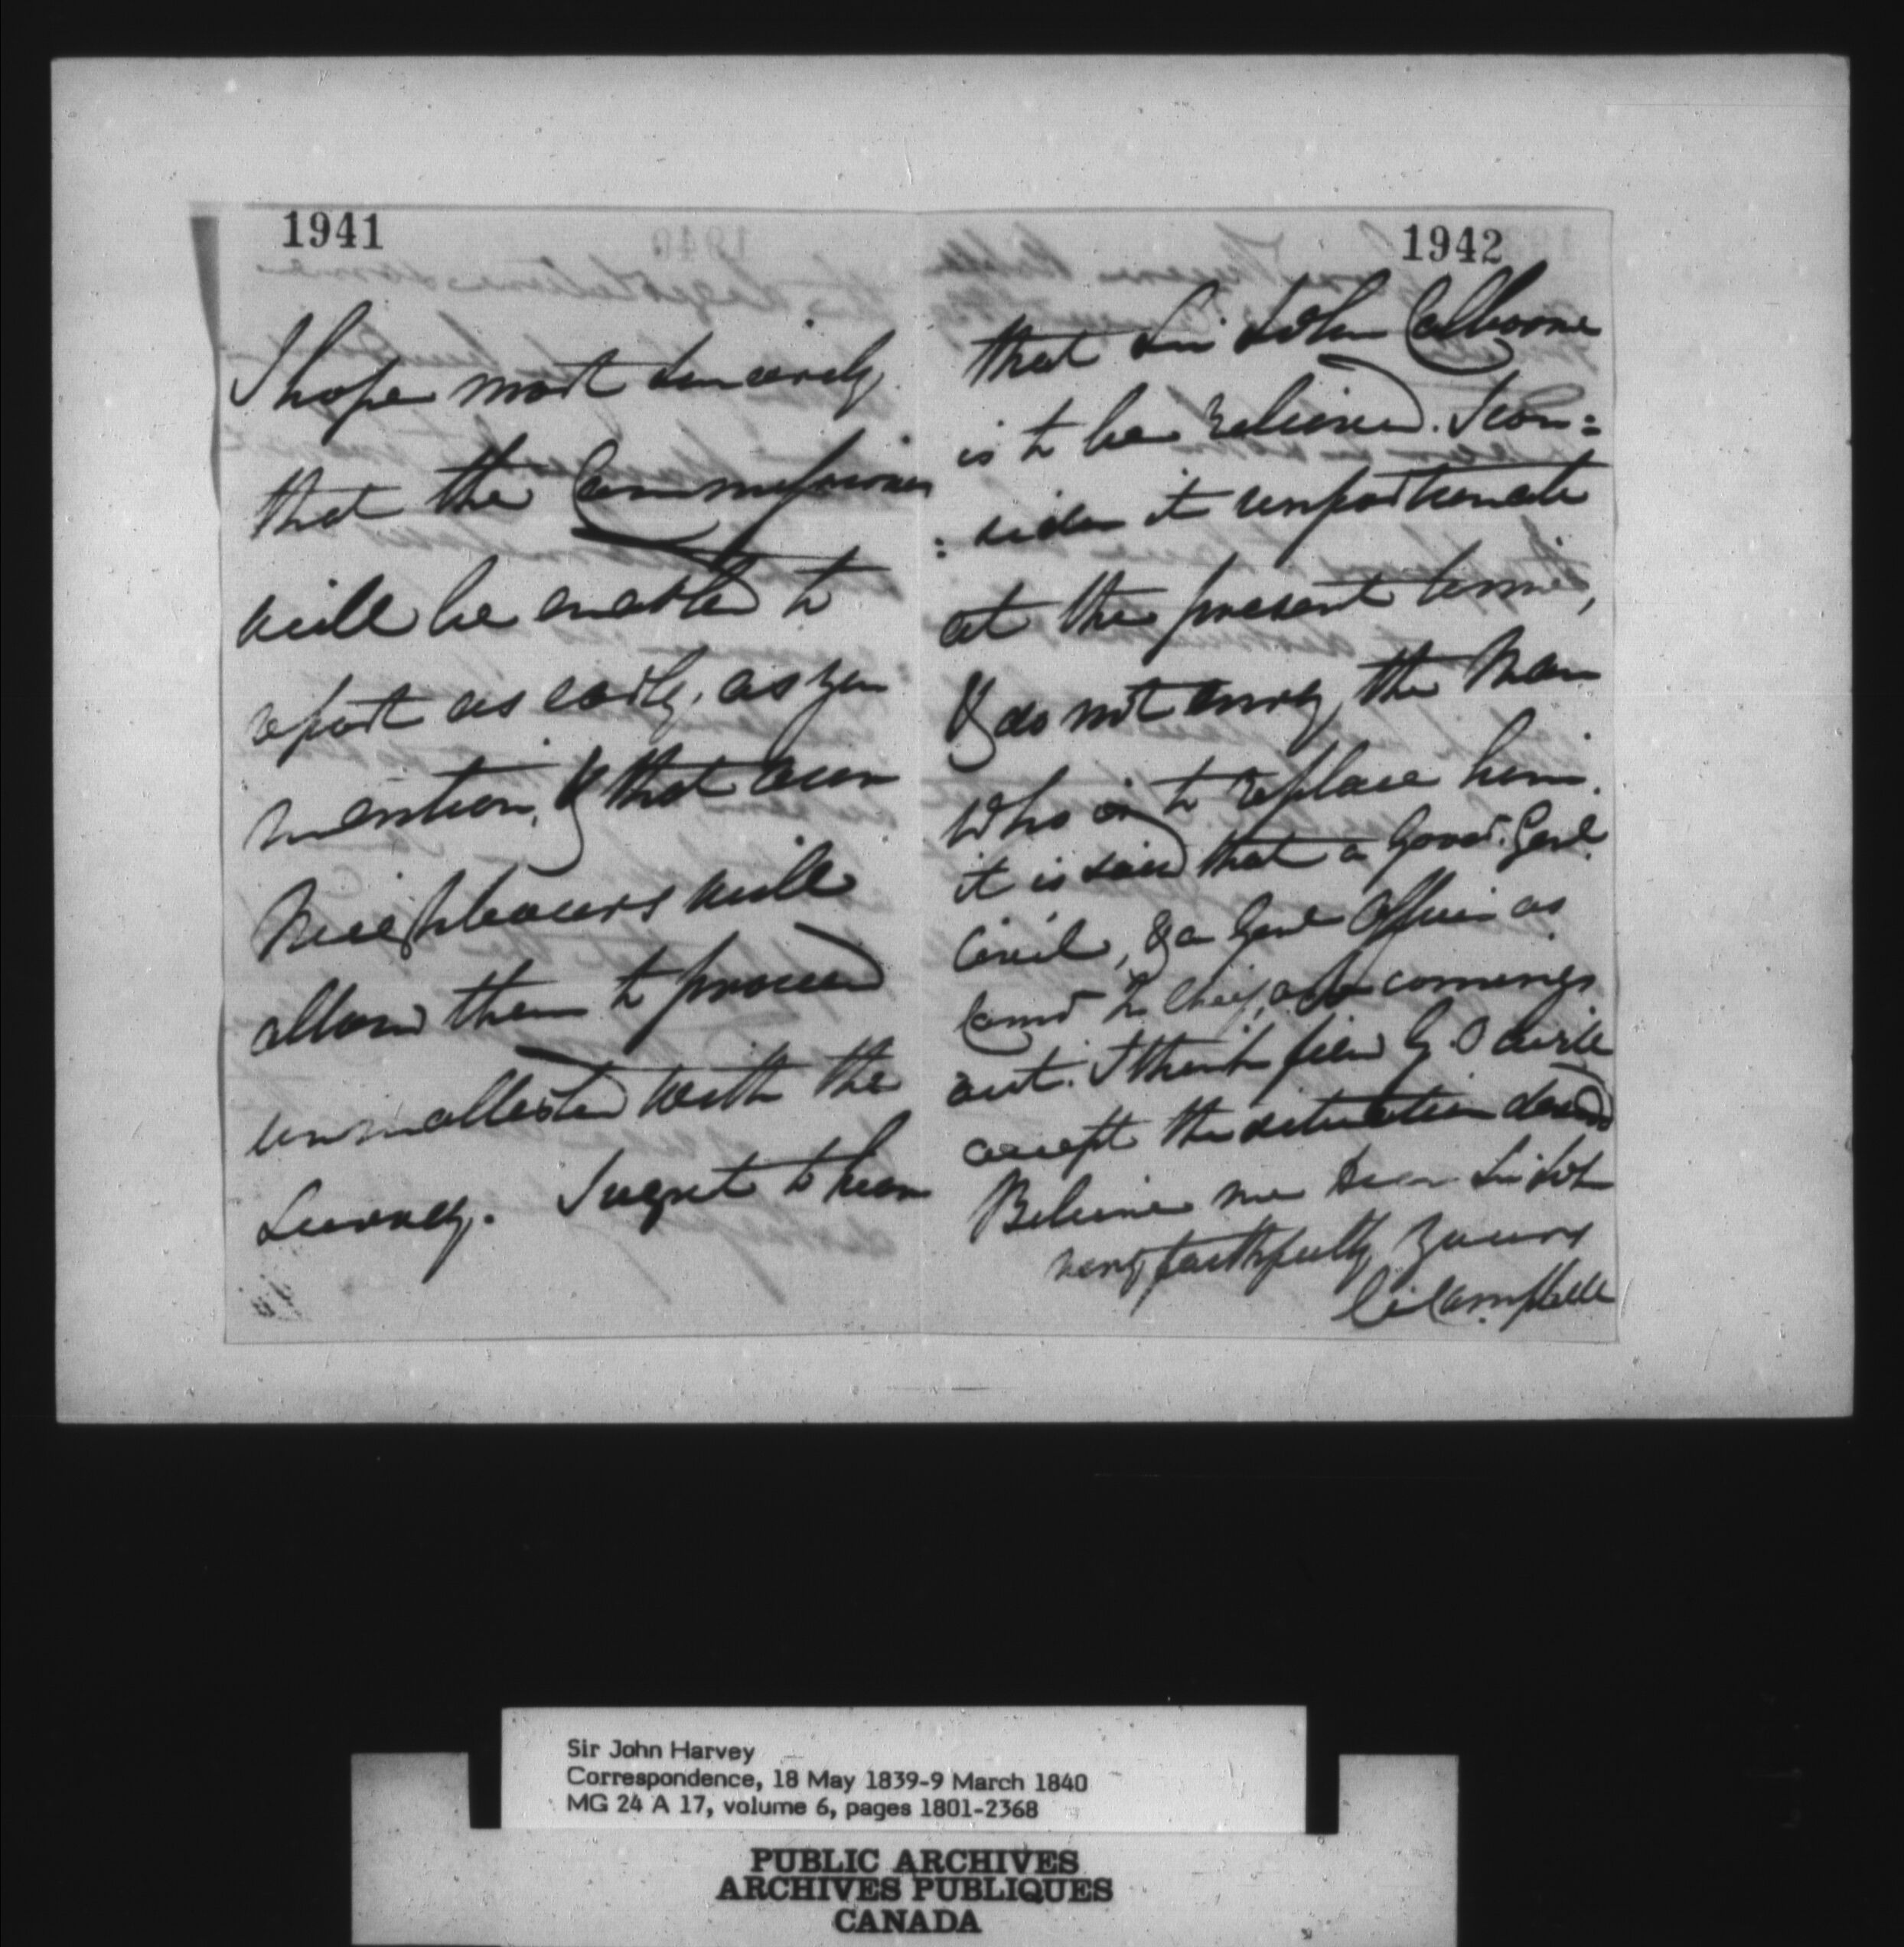 1941
I hope most sincerely
that the Commissioners
will be enabled to
report as early, as you
mention, & that our
Neighbours will
allow them to proceed
unmollested with the
Survey. I regret to hear
1942
that Sir John Colborne
is to be relieved. I con=
=sider it unfortunate
at the present time,
& do not envy the Man
who is to replace him.
it is said that a Govr. Genl.
Civil, & a Genl Officer as
Comd In Chief, are coming
out. I think few G.O will
accept the situation
Believe me Dear Sir John
very faithfully Yours
C Campbell
Sir John Harvey
Correspondence, 18 May 1839-9 March 1840
MG 24 A 17, volume 6, pages 1801-2368
PUBLIC ARCHIVES
ARCHIVES PUBLIQUES
CANADA